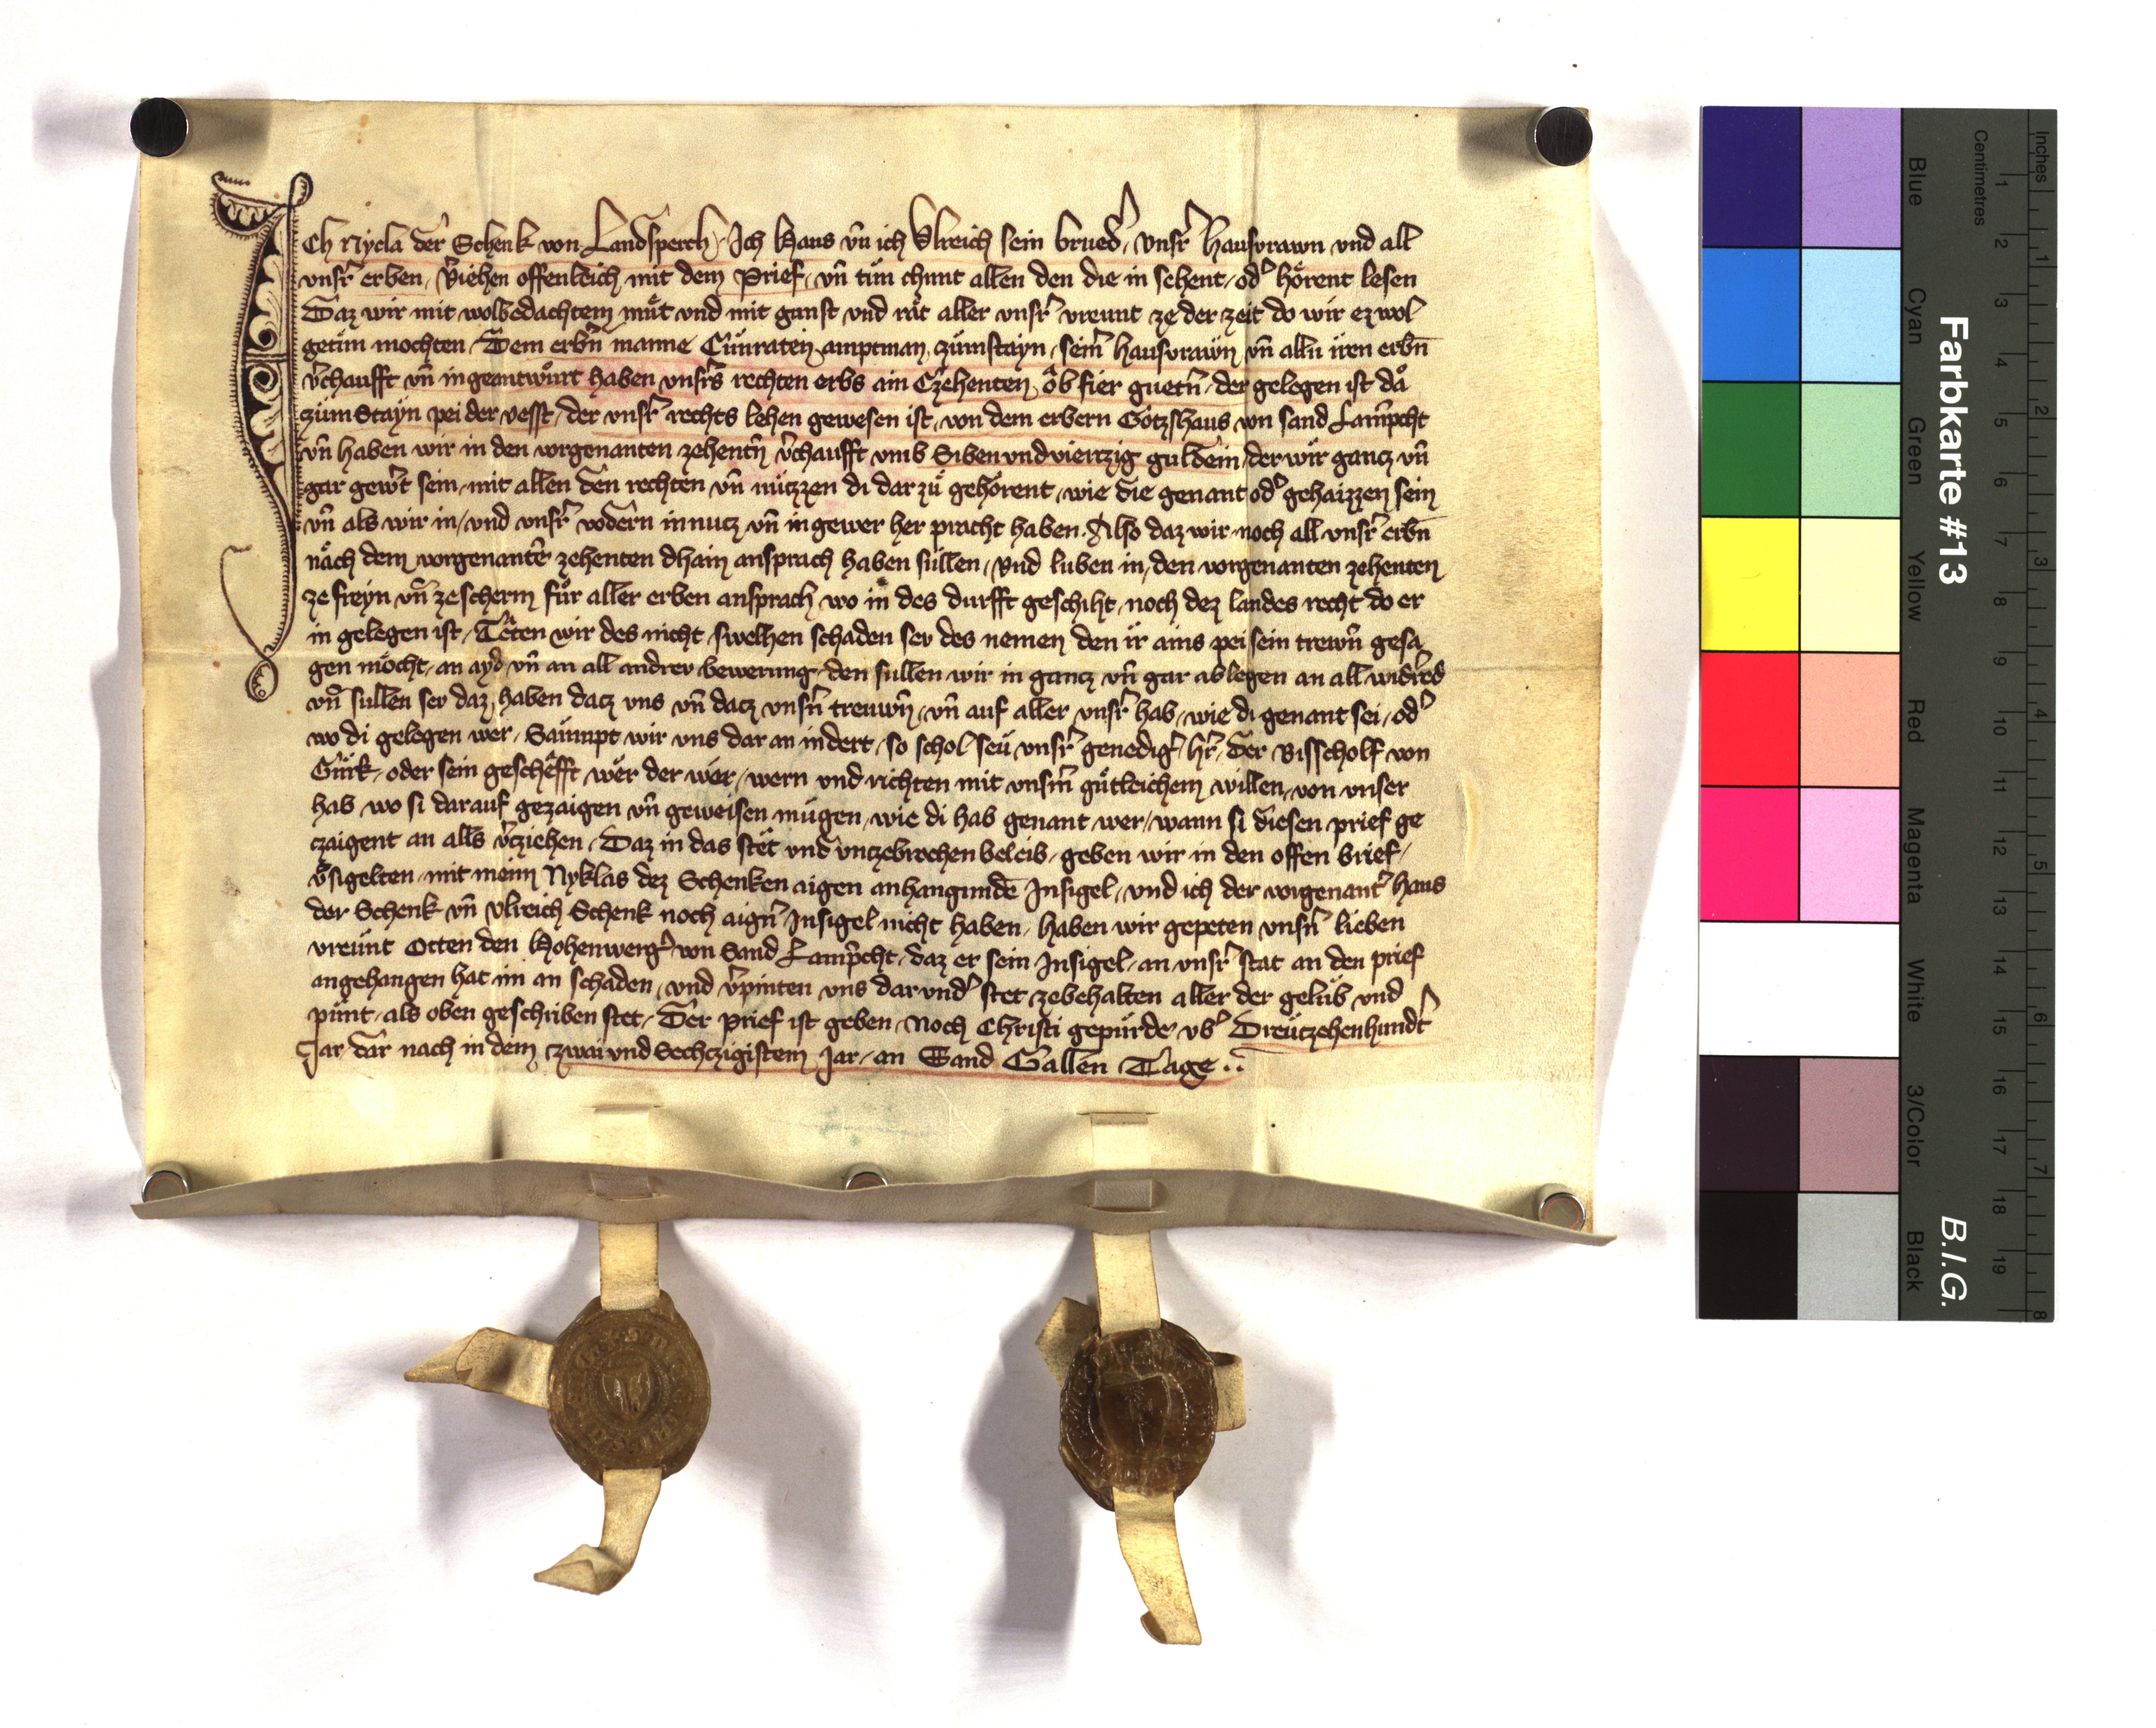 Ich Nycla der Schenk von Landsperch Ich Hans vn̄ ich Vlreich sein brued᾽ vnsr᾽ hausvrawn vnd all
vnsr᾽ erben v᾽iehen offenleich mit dem Prief vn̄ tün chunt allen den die in sehent od᾽ hörent lesen
Daz wir mit wolbedachtem můt vnd mit gunst vnd råt aller vnsr᾽ vreunt ze der zeit do wir ez wol
getün mochten Dem erbn̄ manne Cünraten amptman zümstayn seim᾽ hausvrawn vn̄ alln iren erbn̄
v᾽chaufft vn̄ ingeantwürt haben vnsr᾽s rechten erbs ain Czehenten ob fier guetn᾽ der gelegen ist då
züm Stayn pei der vesst der vnsr᾽ rechts lehen gewesen ist von dem erbern Gotzshaus von sand Lamp᾽cht
vn̄ haben wir in den vorgenanten zehentn᾽ v᾽chaufft vmb Siben vnd viertzig guldein der wir gancz vn̄
gar gew᾽t sein mit allen den rechten vn̄ nützzen di dar zů gehörent wie die genant od᾽ gehaizzen sein
vn̄ als wir in vnd vnsr᾽ vodern in nucz vn̄ in gewer her pracht haben. Also daz wir noch all vnsr᾽ erbn̄
nåch dem vorgenantē zehenten dhain ansprach haben süllen Vnd luben in den vorgenanten zehenten
ze freyn vn̄ ze scherm für aller erben ansprach wo in des durfft geschiht noch dez landes recht do er
in gelegen ist Têten wir des nicht swelhen schaden sev des nemen den ir ains pei sein trewn̄ gesa
gen möcht an ayd vn̄ an all andrev bewerung den sullen wir in gancz vn̄ gar ablegen an all wid᾽red
vn̄ sullen sev daz haben dacz vns vn̄ dacz vnsn᾽ treuwn̄ vn̄ auf aller vnsr᾽ hab wie di genant sei od᾽
wo di gelegen wer Saümpt wir vns dar an indert so schol seu vnsr᾽ genedig᾽ h᾽r der Bisscholf von
Gürk oder sein geschêfft wêr der wêr wern vnd richten mit vnsm᾽ gütleichem willen von vnser
hab wo si darauf gezaigen vn̄ geweisen mügen wie di hab genant wer wann si diesen prief ge
czaigent an alls v᾽cziehen Daz in das stêt vnd vnczebrochen beleib geben wir in den offen brief
v᾽sigelten mit meim Nyklas dez Schenken aigen anhangundē Insigel vnd ich der vorgenant᾽ hans
der Schenk vn̄ vlreich Schenk noch aign᾽ Insigel nicht haben haben wir gepeten vnsn᾽ lieben
vreunt Otten den Hohenwerg᾽ von Sand Lamp᾽cht daz er sein Insigel an vnsr᾽ stat an den prief
angehangen hat im an schaden vnd v᾽pinten vns dar vnd᾽ stet zebehalten aller der gelüb vnd
pünt als oben geschriben stet Der prief ist geben noch Christi gepürde vb᾽ Dreutzehenhund᾽t
Jar dar nach in dem zwai vnd Sechczigistem Jar an Sand Gallen Tage
Farbkarte #13
B.I.G.
Inches 1 2 3 4 5 6 7 8
Centimetres 1 2 3 4 5 6 7 8 9 10 11 12 13 14 15 16 17 18 19
Blue Cyan Green Yellow Red Magenta White 3/Color Black